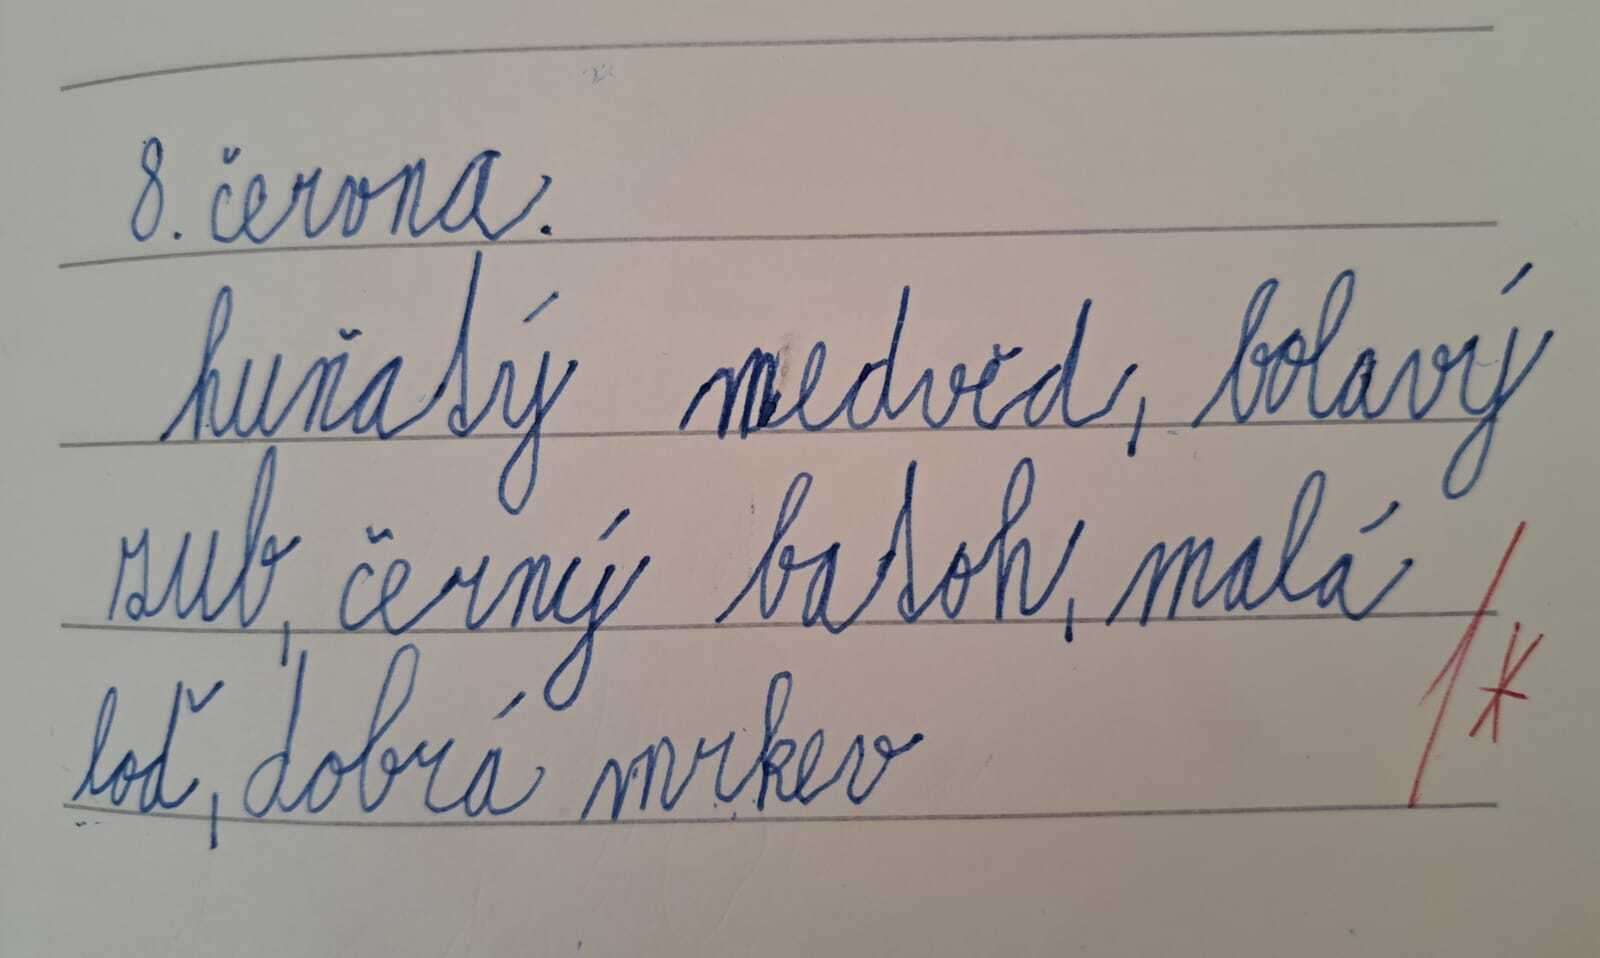 8. června.
huňatý medvěd, bolavý
zub, černý batoh, malá
loď, dobrá mrkev
1*